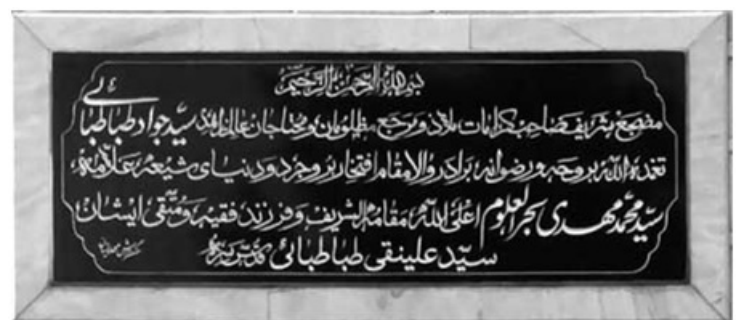 بسم الله الرحمن الرحیم
مضجع شریف صاحب کرامات ملاذ و مرجع مظلومان و محتاجان عالم سید جواد طباطبائی
تغمده الله بروحه و رضوانه برادر والامقام افتخار بروجرد و دنیای شیعه علامه
سید محمد مهدی بحرالعلوم اعلی الله مقامه الشریف و فرزند فقیه و متقی ایشان
سید علینقی طباطبائی قدس سره